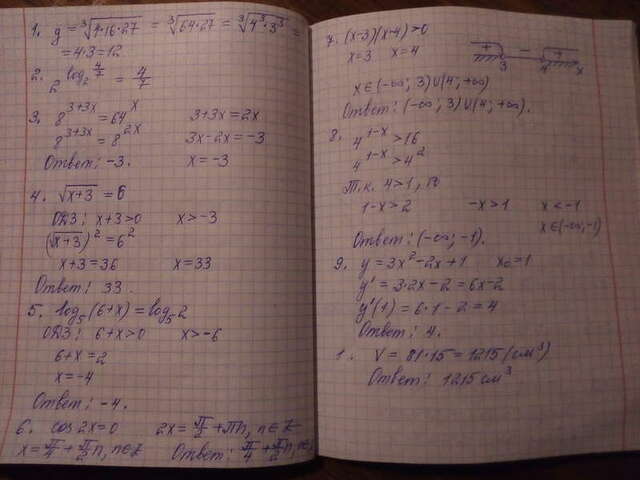 1. y = ∛(4·16·27) = ∛(64·27) = ∛(4³·3³) =
= 4·3 = 12
2. 2^(log₂ 4/7) = 4/7
3. 8^(3+3x) = 64^x 3+3x = 2x
8^(3+3x) = 8^(2x) 3x-2x = -3
Ответ: -3. x = -3
4. √(x+3) = 6
ОДЗ: x+3>0 x>-3
(√(x+3))² = 6²
x+3 = 36 x = 33
Ответ: 33.
5. log₅(6+x) = log₅2
ОДЗ: 6+x>0 x>-6
6+x = 2
x = -4
Ответ: -4.
6. cos 2x = 0 2x = π/2 + πn, n∈Z
x = π/4 + π/2 n, n∈Z Ответ: π/4 + π/2 n, n∈
7. (x-3)(x-4)>0
x=3 x=4
+ - +
3 4 x
x∈(-∞; 3)∪(4; +∞)
Ответ: (-∞; 3)∪(4; +∞).
8. 4^(1-x) > 16
4^(1-x) > 4²
Т.к. 4>1, то
1-x>2 -x>1 x<-1
x∈(-∞;-1)
Ответ: (-∞; -1).
9. y = 3x²-2x+1 x₀=1
y' = 3·2x-2 = 6x-2
y'(1) = 6·1-2 = 4
Ответ: 4.
1. V = 81·15 = 1215 (см³)
Ответ: 1215 см³